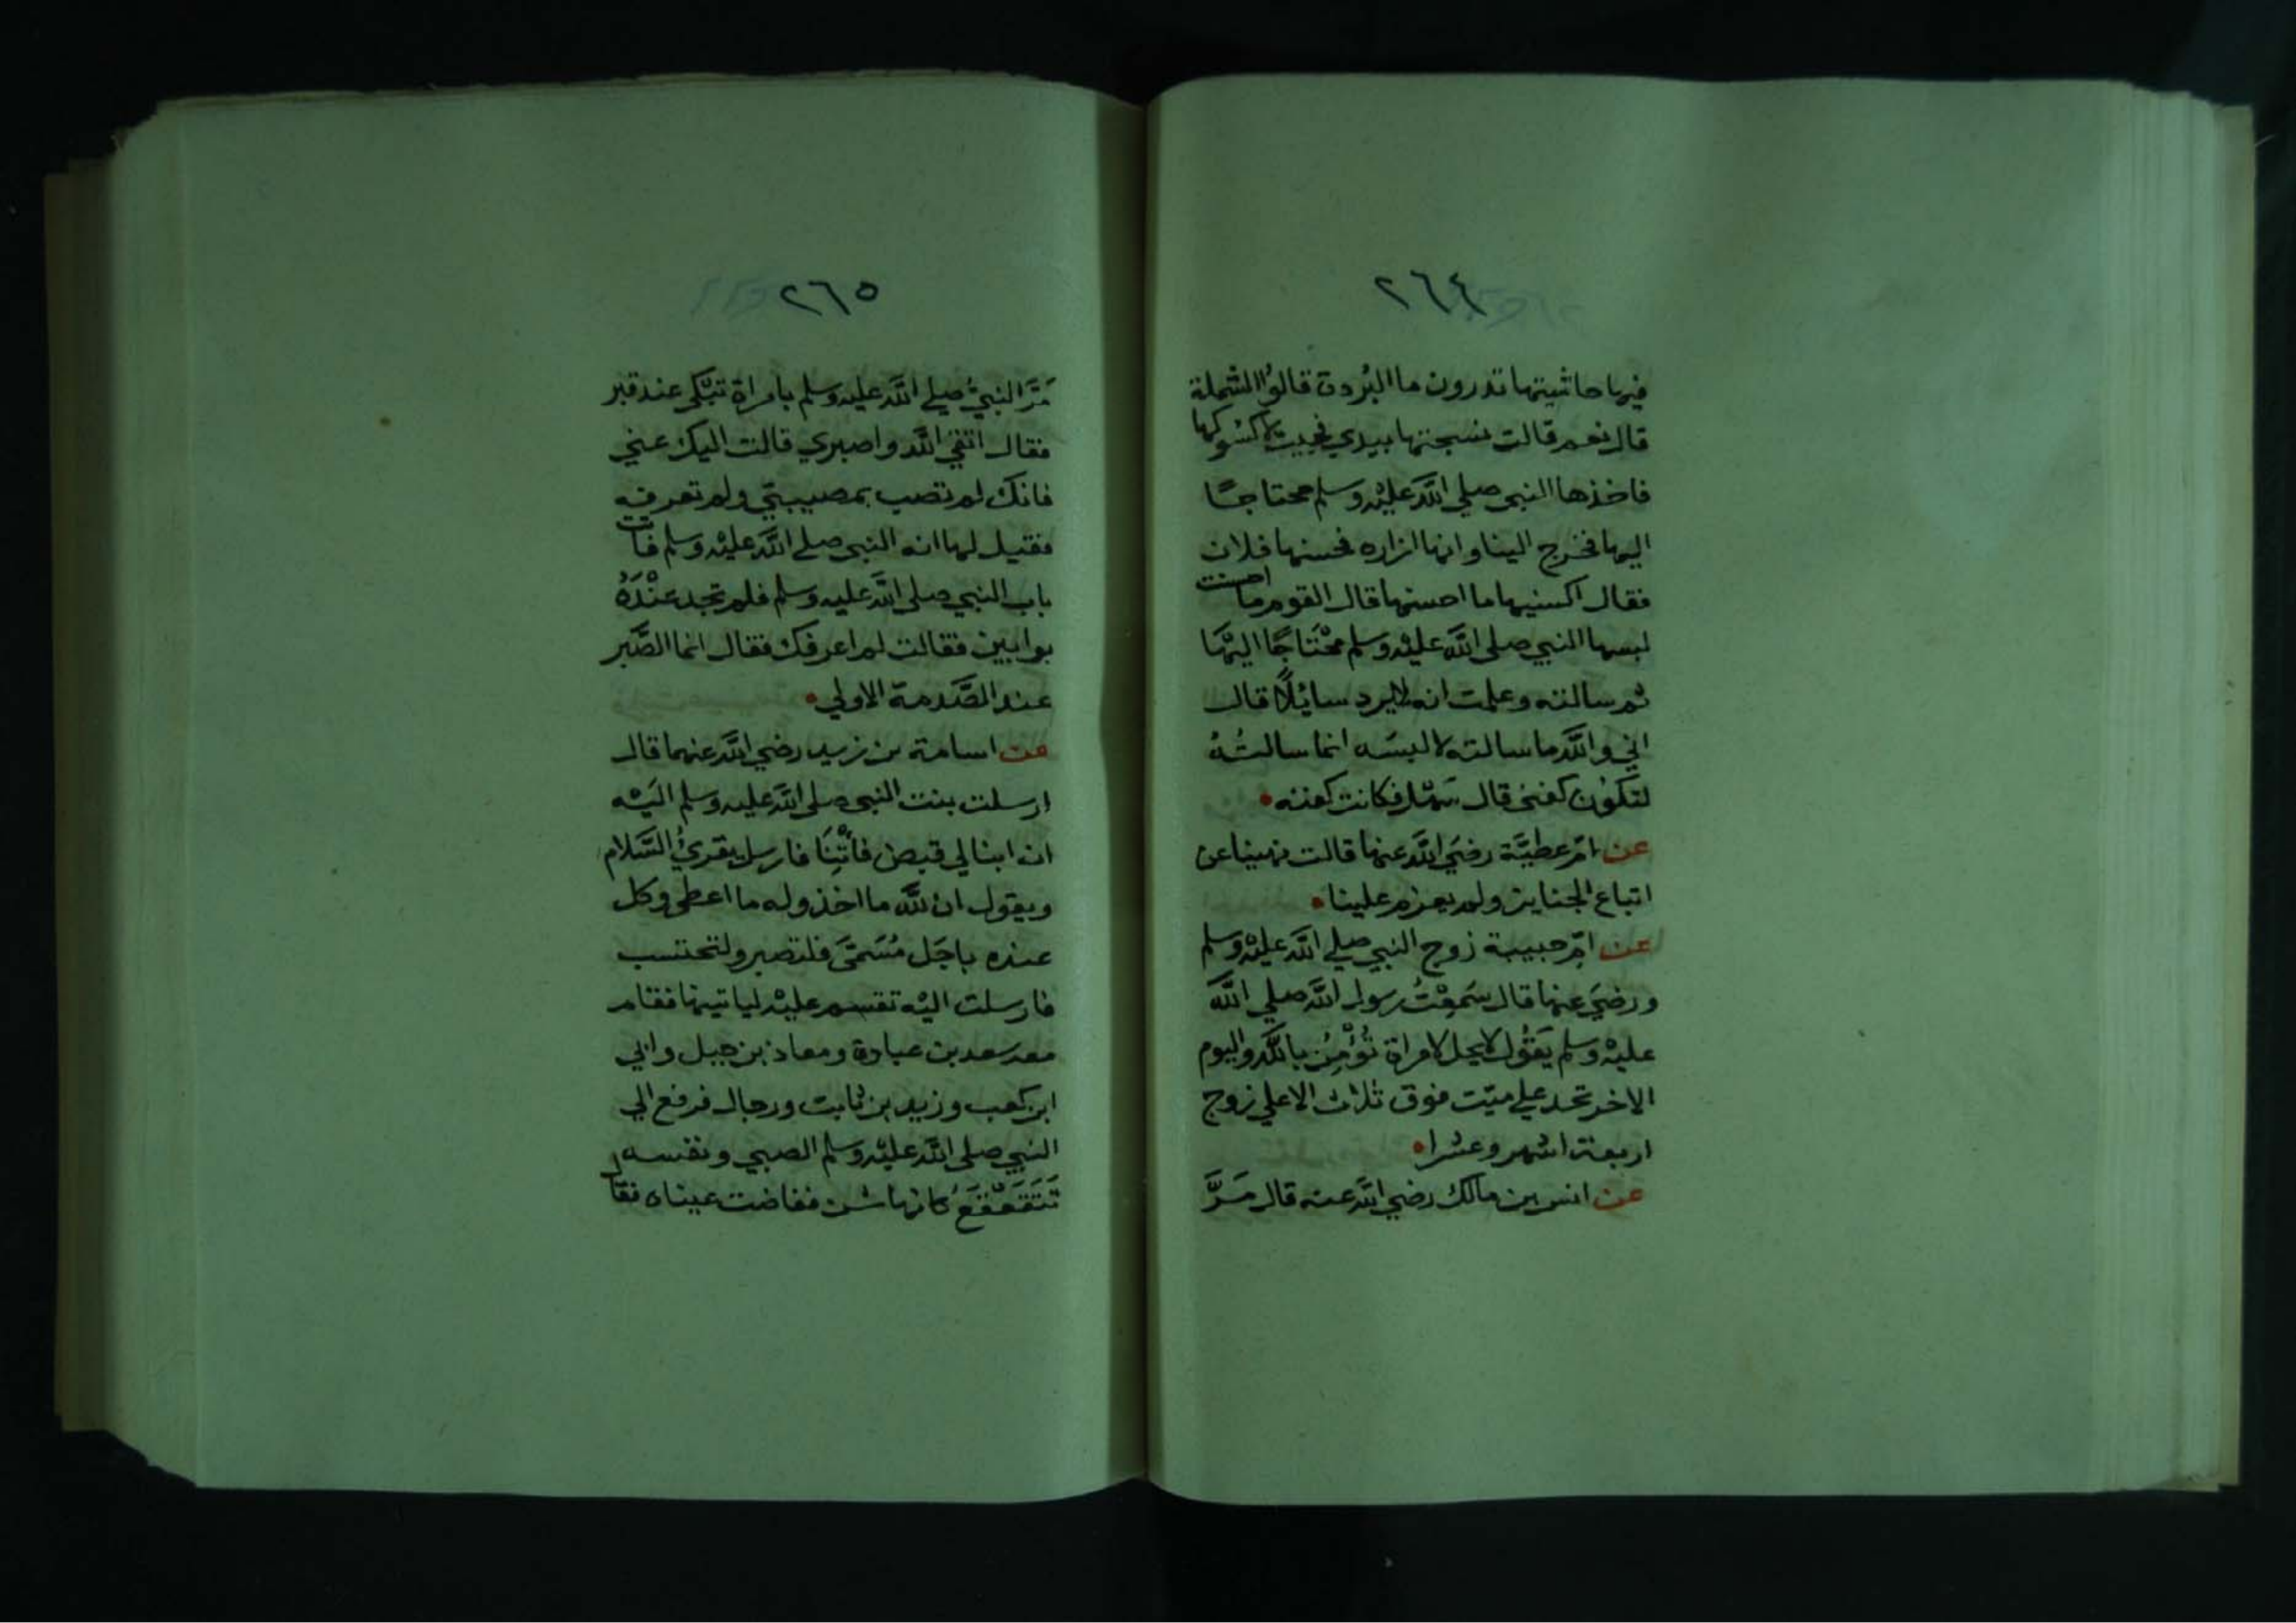 ٢٦٤
فيها حاشيتها تدرون ما البُردة قالوُا الشملة
قال نعم قالت نسجتها بيدي فجيت لاكسوكها
فاخذها النبي صلي اللَّه عليْه وسلم محتاجًا
اليها فخرج الينا وانها ازاره فحسنها فلان
فقال اكسنيها ما احسنها قال القوم ما احسنت
لبسها النبي صلى اللَّه عليْه وسلم مُحْتَاجًا اليْهَا
ثم سالته وعلمت انه لايرد سائِلًا قال
اني واللَّه ما سالته لالبسَه انما سالتُهُ
لتكوُن كفني قال سَهْل فكانت كفنه
عن امّ عطيَّة رضيَ اللَّه عنها قالت نهينا عن
اتباع الجنايز ولم يعزم علينا
عن امّ حبيبة زوج النبي صلي اللَّه عليْه وسلم
ورضيَ عنها قال سَمِعْتُ رسول اللَّه صلي اللَّه
عليْه وسلم يَقوُل لايحل لامراة تُؤْمِنُ باللَّه واليوم
الاخر تحد علي ميّت فوق ثلاث الاعلي زوج
اربعة اشهر وعشرا
عن انس بن مالك رضي اللَّه عنه قال مَرَّ
٢٦٥
مَرَّ النبيُّ صلي اللَّه عليه وسلم بامراة تبْكي عند قبر
فقال اتقي اللَّه واصبري قالت اليك عني
فانك لم تصب بمصيبتي ولم تعرفه
فقيل لها انه النبي صلى اللَّه عليْه وسلم فاتت
باب النبي صلى اللَّه عليه وسلم فلم تجد عنْدَهُ
بوابين فقالت لم اعرفك فقال انما الصَّبر
عند الصَّدمة الاولي
عن اسامة بن زيد رضي اللَّه عنهما قال
ارسلت بنت النبي صلى اللَّه عليه وسلم اليْه
ان ابنا لي قبض فأْتِنَا فارسل يقريُ السَّلام
ويقول ان للَّه ما اخذ وله ما اعطى وكل
عنده باجَل مُسَمَّى فلتصبر ولتحتسب
فارسلت اليْه تقسم عليْه لياتينها فقام
معه سعد بن عبادة ومعاذ بن جبل وابي
ابن كعب وزيد بن ثابت ورجال فرفع الي
النبي صلى اللَّه عليْه وسلم الصبي ونفسه
تَتَقَعْقَعُ كانها شن ففاضت عيناه فقال